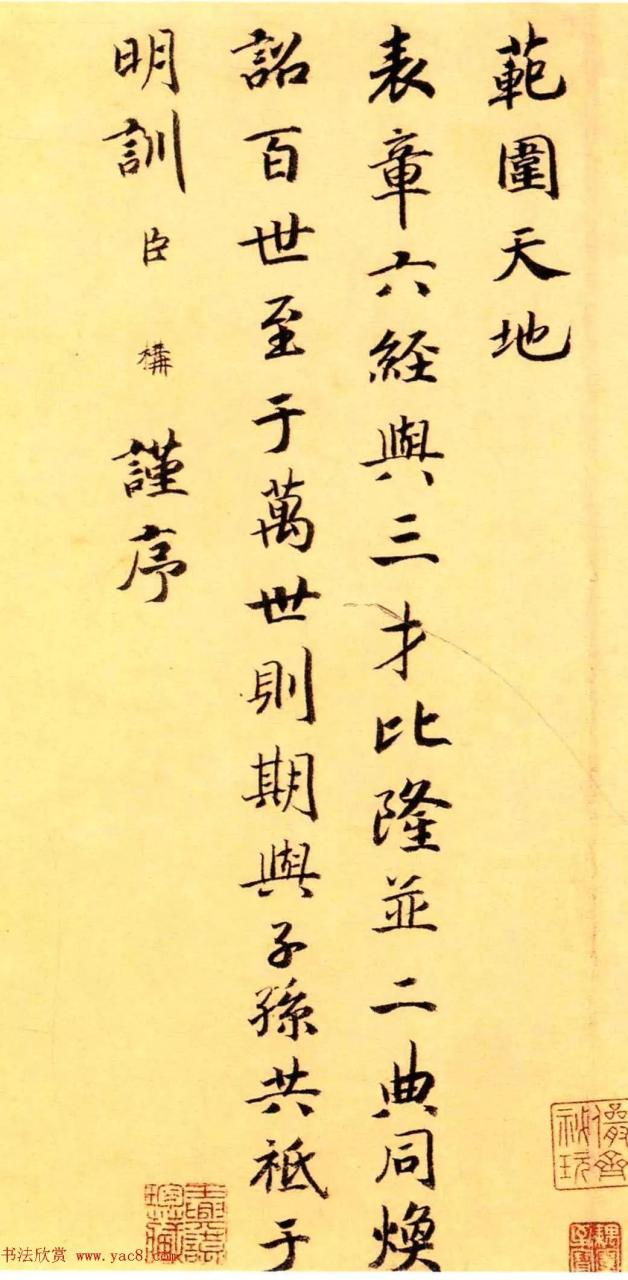 範圍天地
表章六經與三才比隆並二典同煥
詔百世至于萬世則期與子孫共祗于
明訓臣構謹序
儼齋秘玩
书法欣赏 www.yac8.com